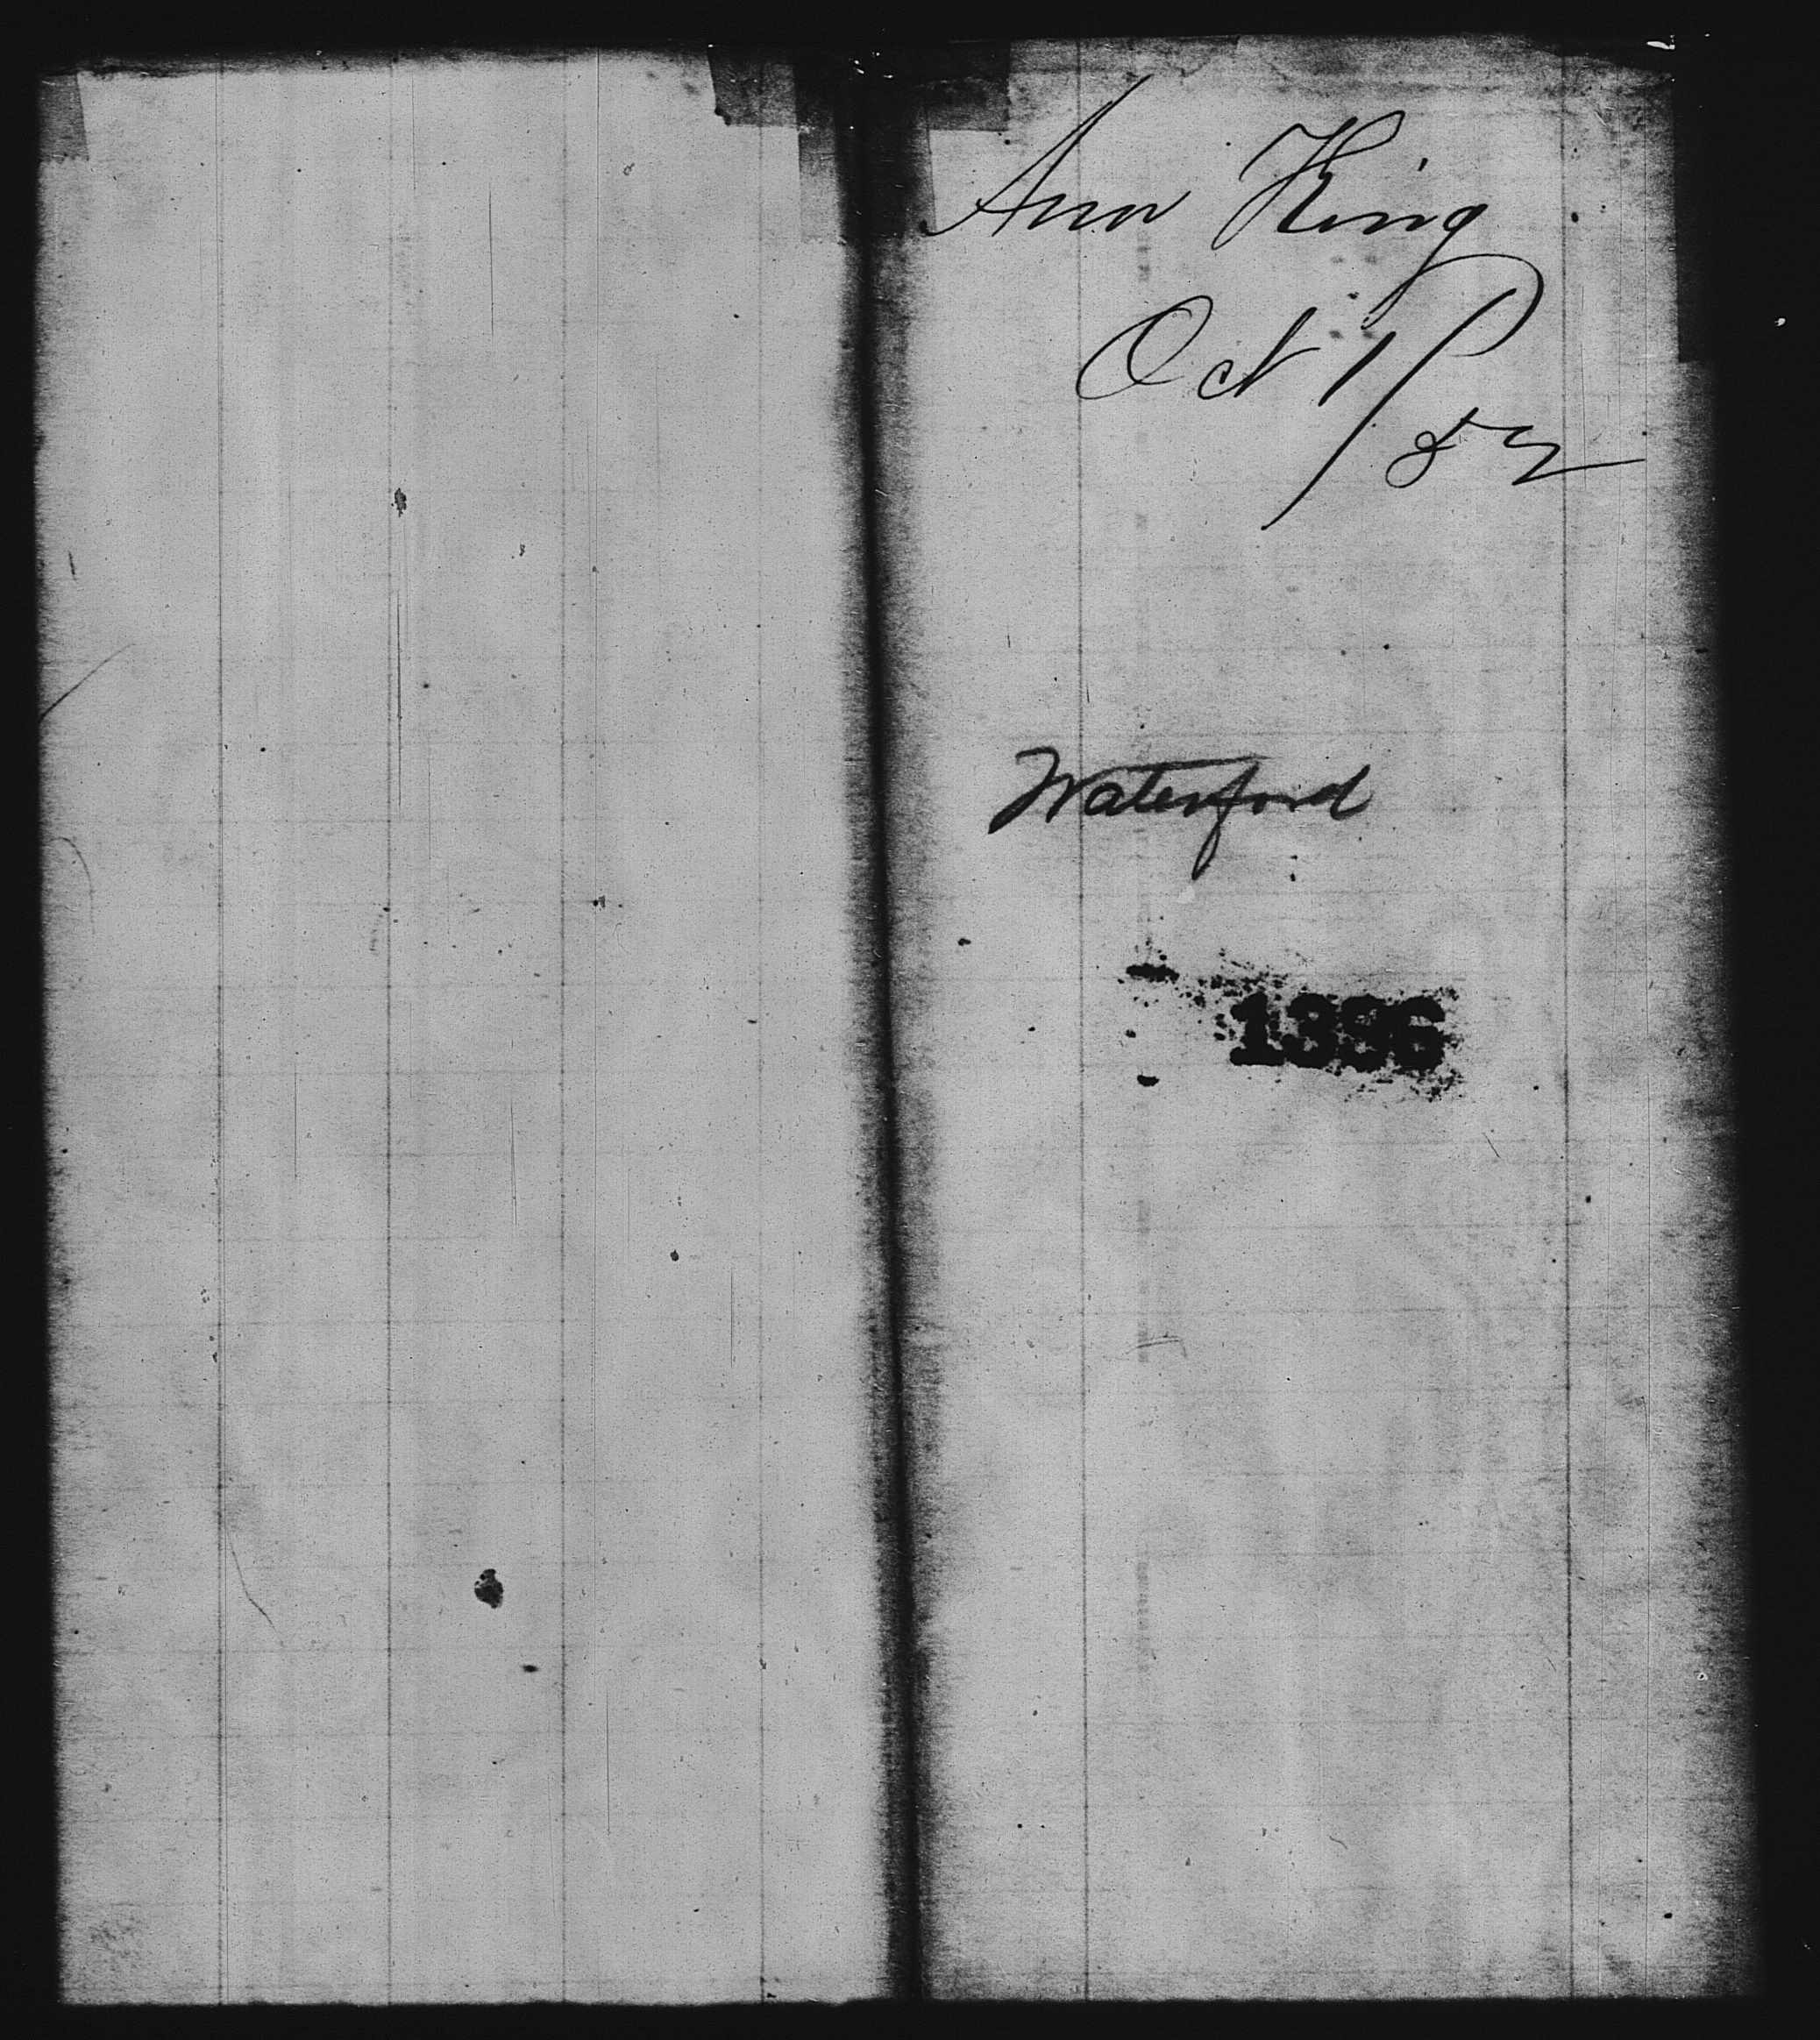 Ann King
Oct 1/82
Waterford
1396